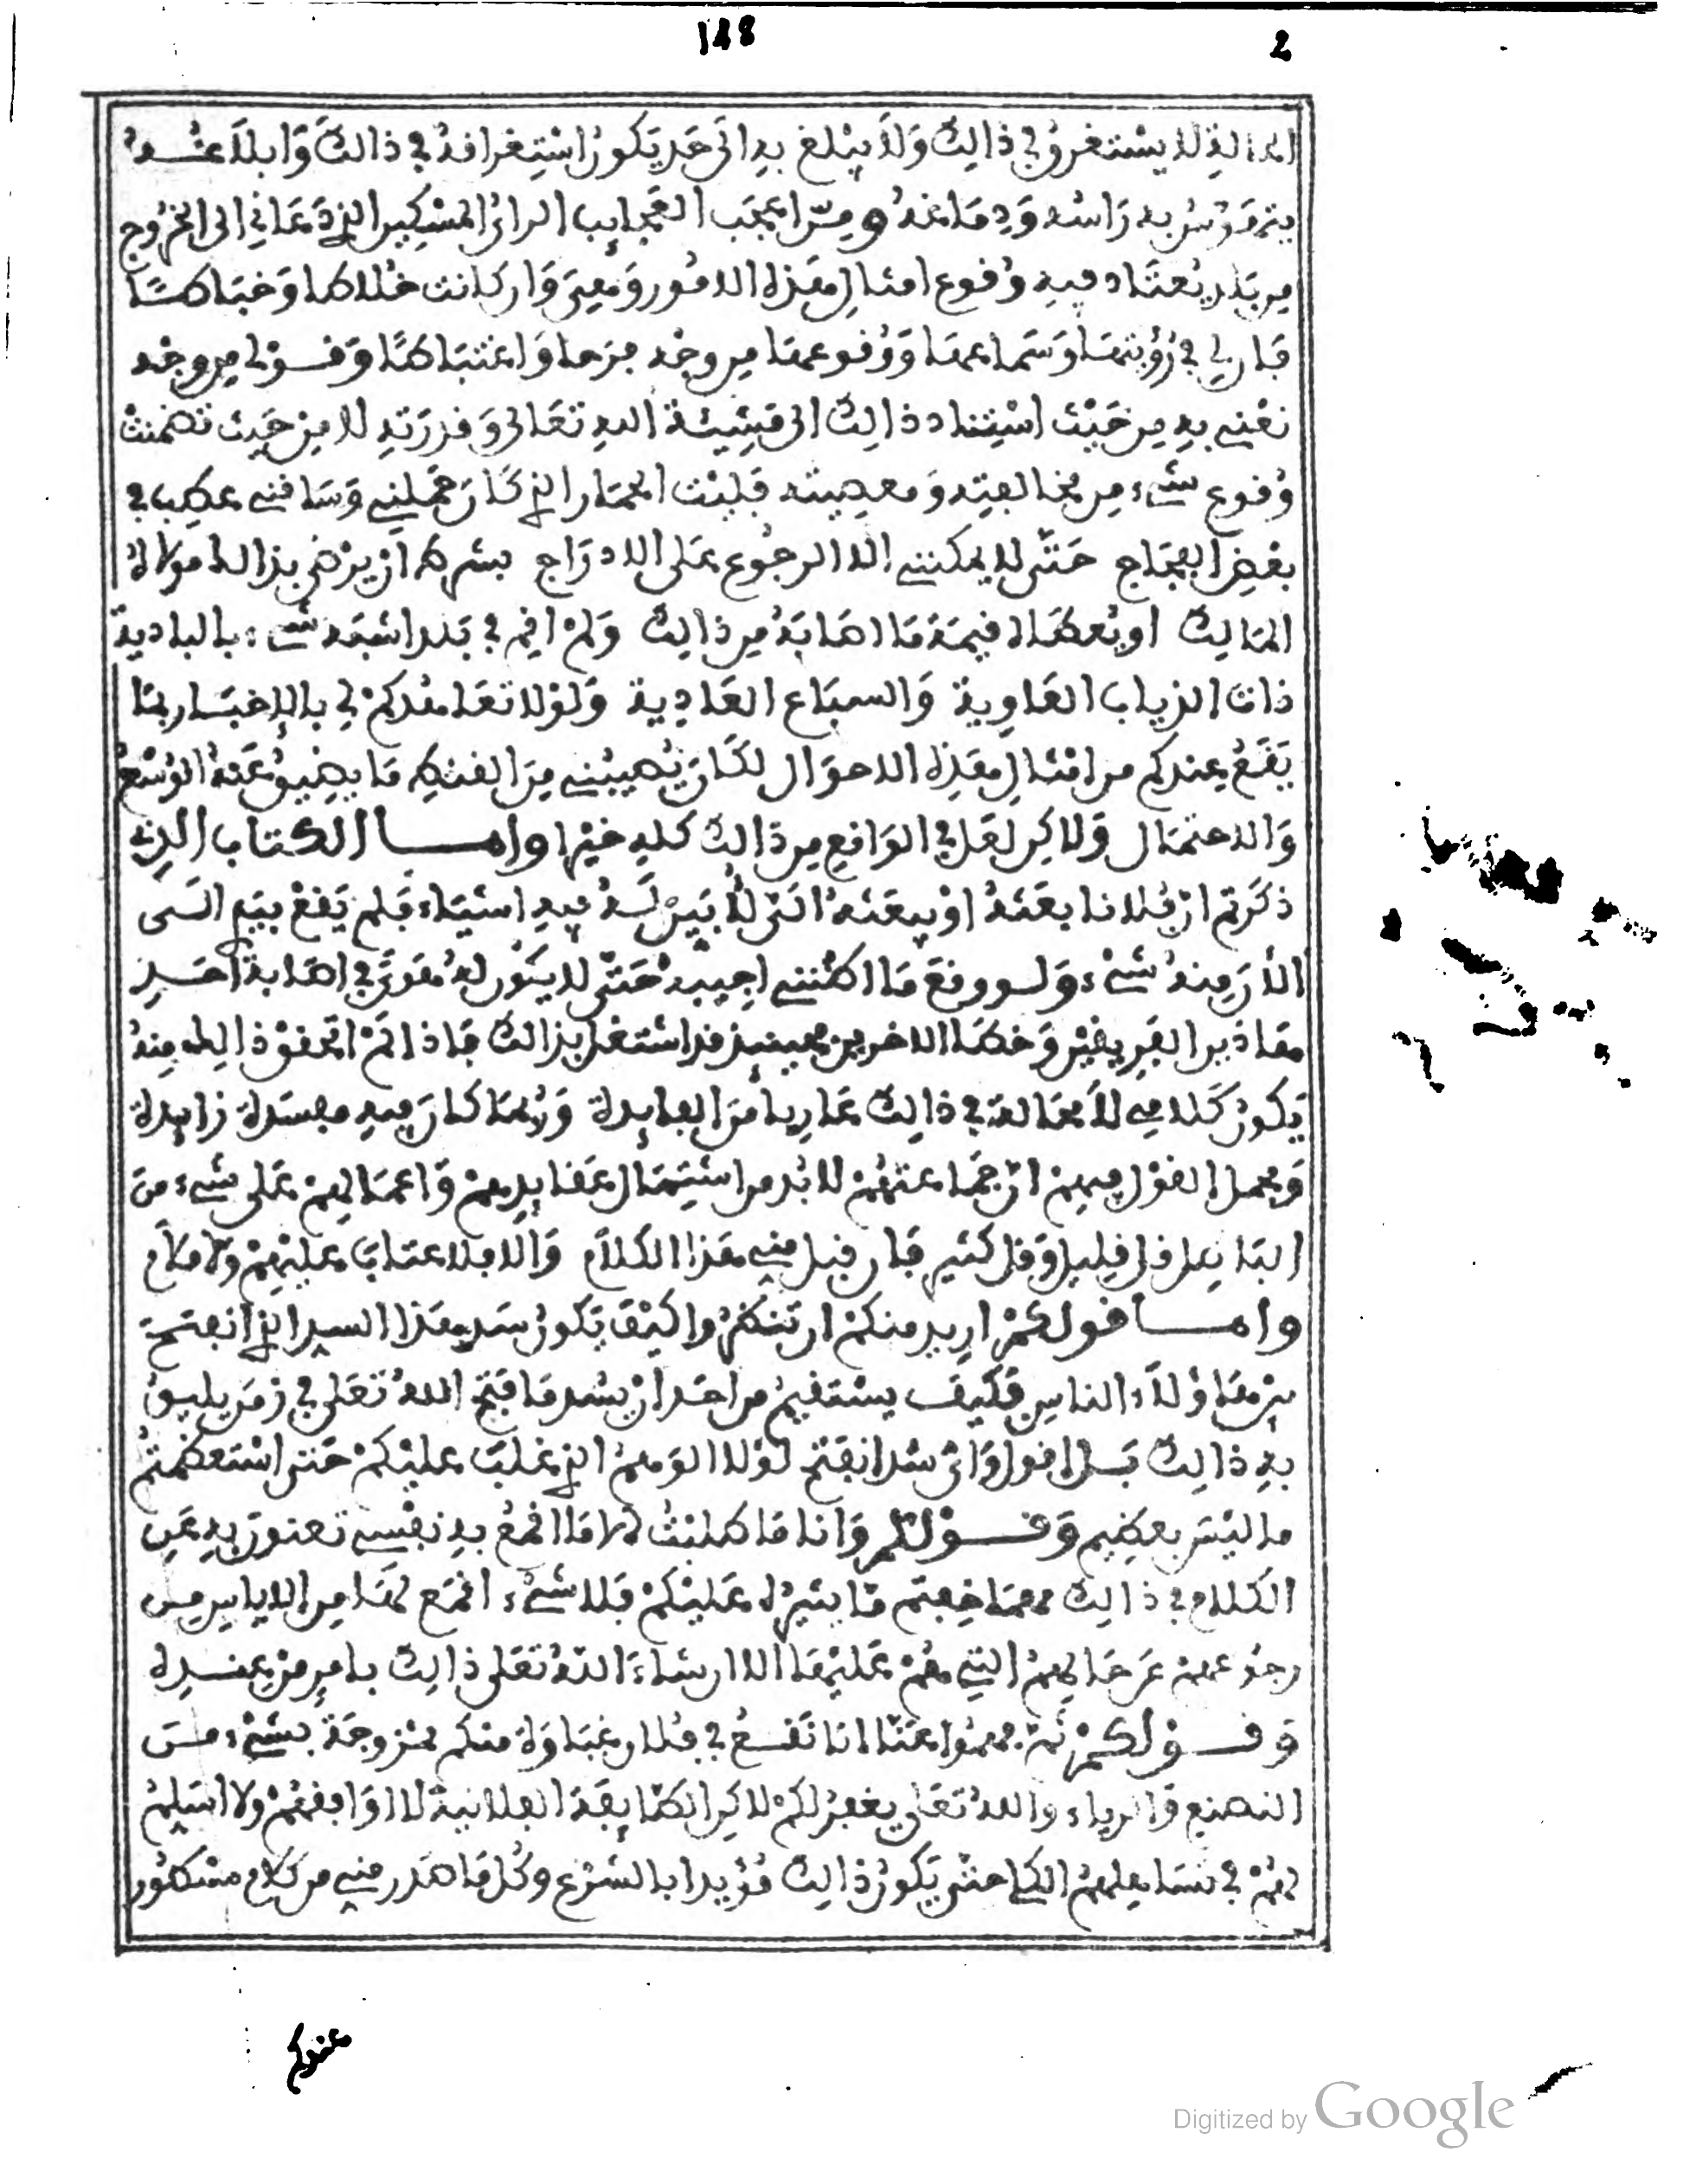 148 2
الحالة لا يستغرق في ذالك ولا يبلغ به الى حد يكون استغرافه في ذالك وابلا عنده
يتمرفوش به راسه ودماغه ومن اعجب العجايب الراى المسكين الذي دعاني الى الخروج
من بلد يعتاد فيه وقوع امثال هذه الامور وهي وان كانت ضلالا وخباطا
فان لي في رؤيتها وسماعها ووقوعها من وجه مزحا واغتباطا وقولي من وجه
نعني به من حيث استناد ذالك الى مشيئة الله تعالى وقدرته لا من حيث تضمنت
وقوع شيء من مخالفته ومعصيته فليت الحمار الذي كان حملني وساقني عطب في
بعض الفجاج حتى لا يمكنني الا الرجوع على الادراج بشرط ان يرضى بذالك مولاه
المالك او يعطاه قيمة ما اصابه من ذالك ولم اقم في بلد اشبه شيء بالبادية
ذات الذياب العاوية والسباع العادية ولولا تعاهدكم لي بالاخبار بما
يقع عندكم من امثال هذه الاحوال لكان يصيبني من الضنك ما يضيق عنه الوسع
والاحتمال ولاكن لعل في الواقع من ذالك كله خيرا واما الكتاب الذي
ذكرتم ان فلانا بعثه او يبعثه الى لابين له فيه اشياء فلم يقع بيد الى
الان منه شيء ولو وقع ما اظنني اجيبه حتى لا يكون له هوى في اصابة احد
هاذين الفريقين وخطا الاخر فحينئذ قد اشتغل بذالك فاذا لم اتحقق ذالك منه
يكون كلامي لا محالة في ذالك عاريا من الفايدة وربما كان فيه مفسدة زايدة
ومجمل القول فيهم ان جماعتهم لا بد من اشتمال عقايدهم واعمالهم على شيء من
الباطل قل قليل او قل كثير فان قبل مني هذا الكلام والا فلا عتاب عليهم ولا ملام
واما قولكم اريد منكم ان تنظروا كيف يكون سد هذا السد الذي انفتح
بين هاؤلاء الناس فكيف يستقيم من احد ان يسد ما فتح الله تعلى في زمن يليق
به ذالك بل اقول واي سد انفتح لولا الوهم الذي غلب عليكم حتى استعظمتم
ما ليس بعظيم وقولكم وانا ما طلبت الا ما اقمع به نفسي تعنون به عن
الكلام في ذالك مهما خفتم ما يثيره عليكم فلا شيء اقمع لها من الاياس من
رجوعهم عن حالهم التي هم عليها الا ان شاء الله تعلى ذالك بامر من عنده
وقولكم ثم فهموا عنا انا نقع في فلان غباوة منكم ممزوجة بشيء من
التصنع والرياء والله تعلى يغفر لكم لاكن الطايفة الفلانية لا اوافقهم ولا اسلم
لهم في تساهلهم الكلي حتى يكون ذالك مؤيدا بالشرع وكل ما صدر مني من كلام مسطور
عندكم
Digitized by Google